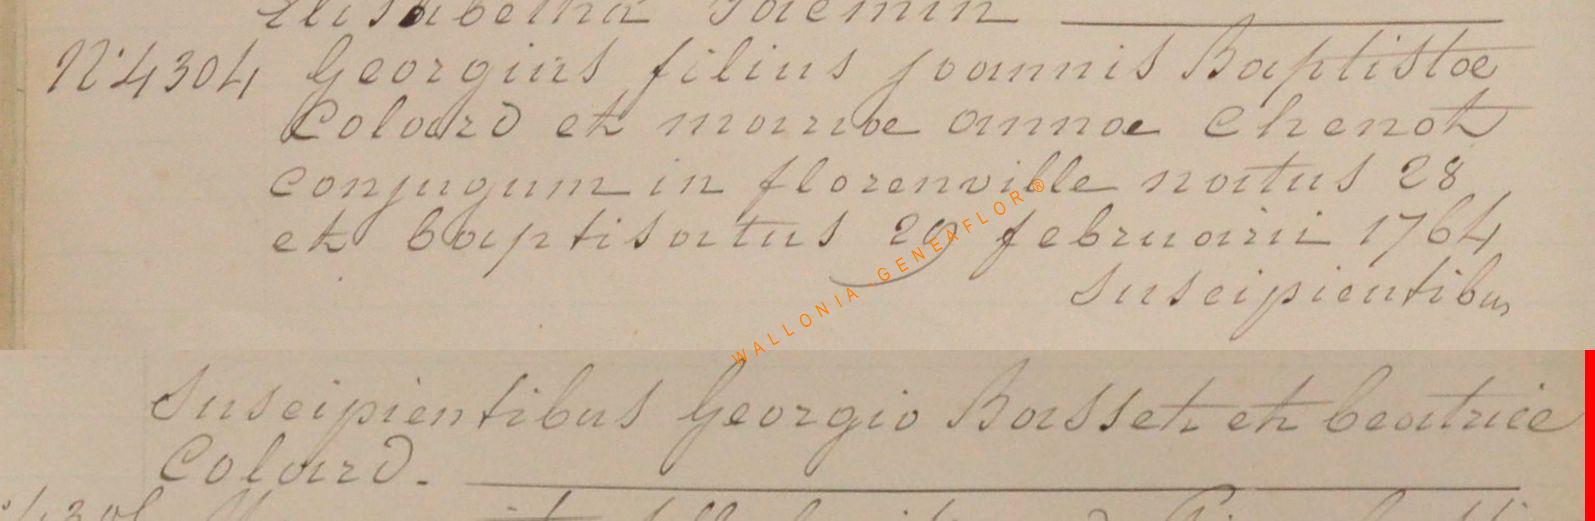 Elisabetha Jaemin
N° 4304 Georgius filius joannis Baptistae
Colard et mariae annae Chenot
conjugum in florenville natus 28
et baptisatus 29 februarii 1764
Suscipientibus
WALLONIA-GENEAFLOR®
Suscipientibus Georgio Basset et beatrice
Colard.